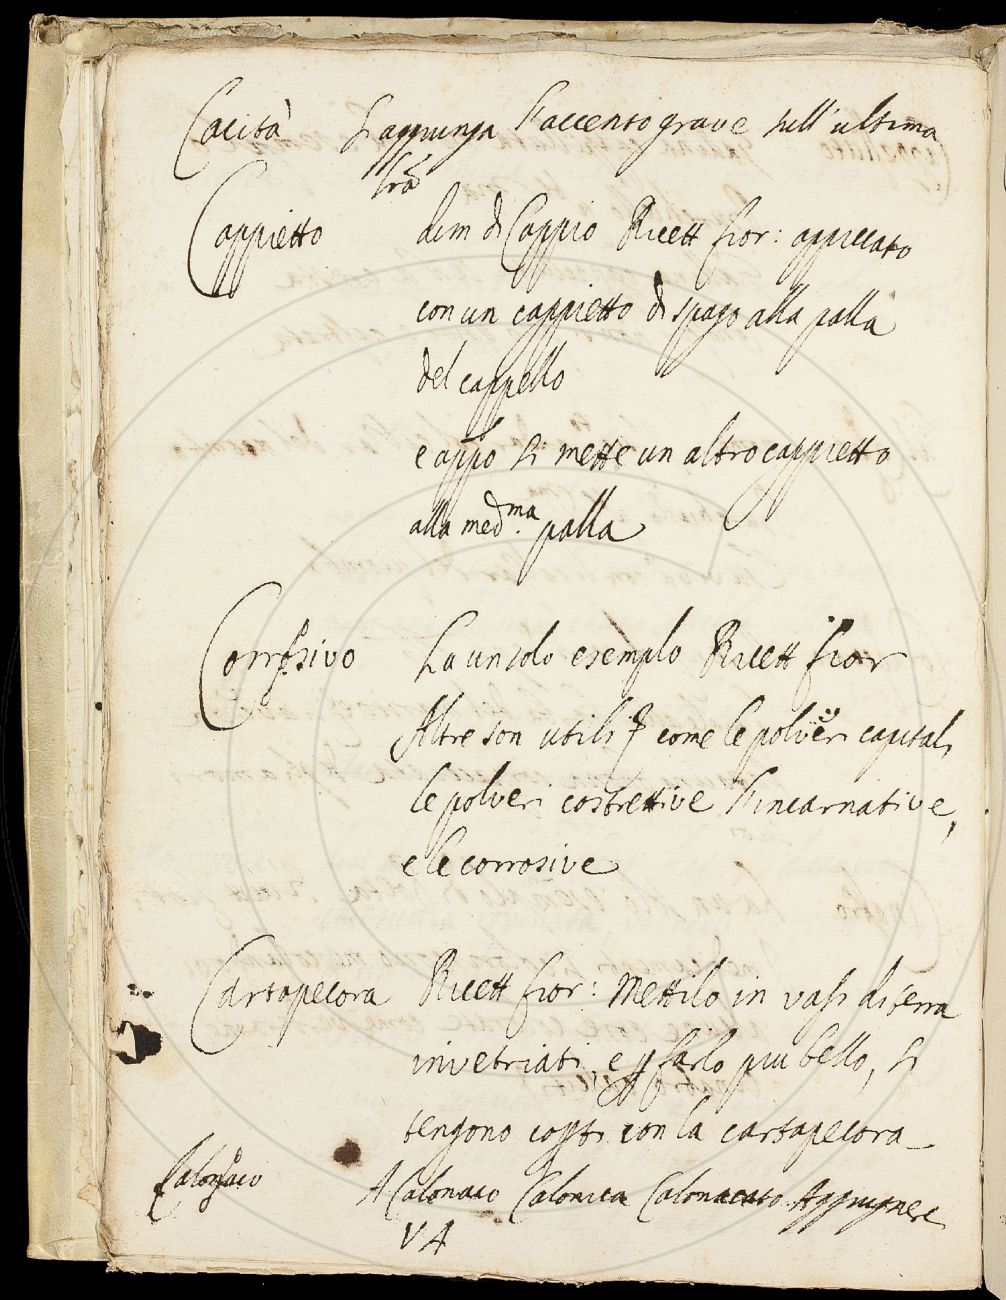 Cacità S'aggiunga l'accento grave sull'ultima
lrã
Cappietto dim di Cappio Ricett fior: appiccato
con un cappietto di spago alla palla
del cappello
e appõ si mette un altro cappietto
alla med.ma palla
Corrosivo Ha un solo esemplo Ricett fior
Altre son utili come le polveri capitali,
le polveri costrettive l'incarnative,
e le corrosive
Cartapecora Ricett fior: Mettilo in vasi di terra
invetriati, e farlo piu bello, si
tengono copti con la cartapecora
A Calonaco Calonica Calonacato Aggiugnere
VA